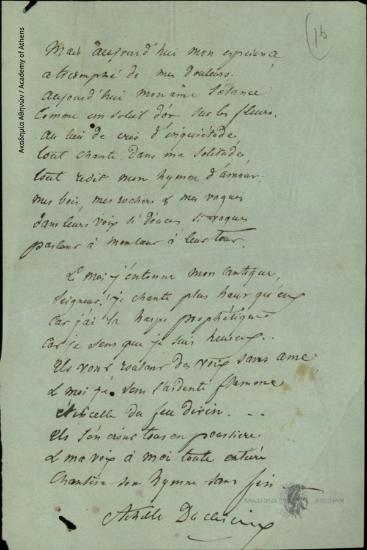 16
Ακαδημία Αθηνών / Academy of Athens
Mais aujourd'hui mon
a triomphé de mes douleurs.
aujourd'hui mon âme s'élance
Comme un soleil d'or sur les fleurs.
au lieu de cris d'inquiétude
tout chante dans ma solitude,
tout redit mon hymne d'amour
mes bois, mes rochers & mes vagues
dans leurs voix si douces si vagues
parlent à mon cœur à leur tour.
Et moi j'entonne mon cantique,
Seigneur! je chante plus haut qu'eux
Car j'ai la harpe prophétique
Car je sens que je suis heureux..
Ils vont roulant des voix sans ame
Et moi je sens l'ardente flamme
Etincelle du feu divin. . .
Ils s'en iront tous en poussière
Et ma voix à moi toute entière
Chantera son hymne sans fin
Achille
ΑΚΑΔΗΜΙΑ ΑΘΗΝΩΝ